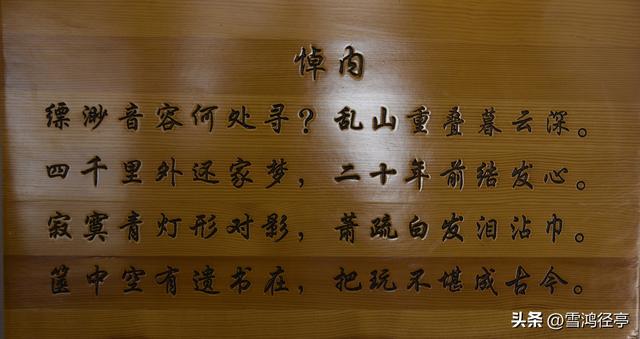 悼内
缥渺音容何处寻？乱山重叠暮云深。
四千里外还家梦，二十年前结发心。
寂寞青灯形对影，萧疏白发泪沾巾。
箧中空有遗书在，把玩不堪成古今。
头条 @雪鸿径亭